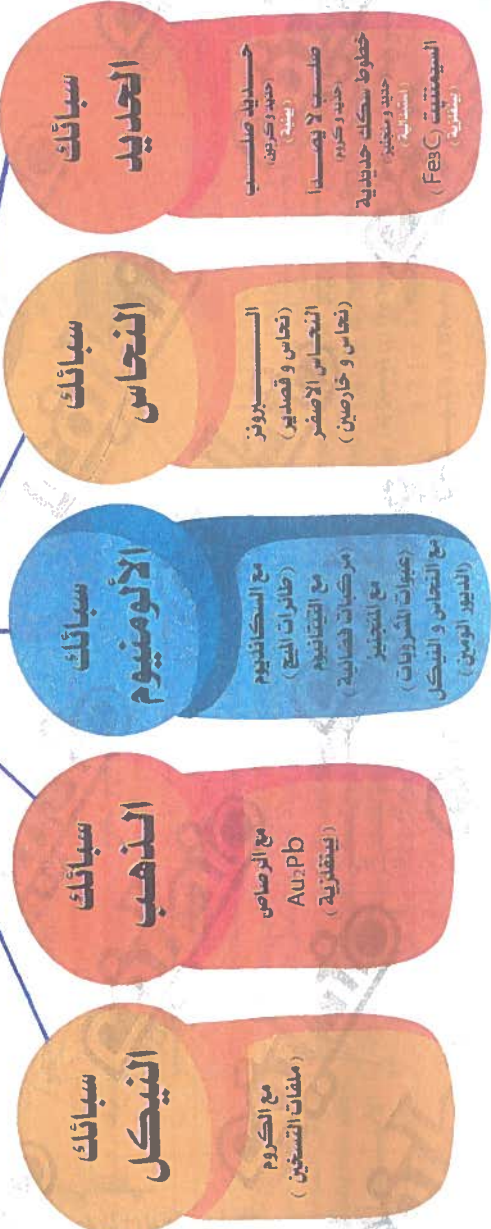 سبائك
الحديد
حديد صلب
(حديد وكربون)
(بينية)
صلب لا يصدأ
(حديد و كروم)
خطوط سكك حديدية
حديد و منجنيز
(استبدالية)
السيمنتيت (Fe3C)
(بينفلزية)
سبائك
النحاس
البرونز
(نحاس و قصدير)
النحاس الاصفر
(نحاس و خارصين)
سبائك
الألومنيوم
مع السكانديوم
(طائرات الميج)
مع التيتانيوم
(مركبات فضائية)
مع المنجنيز
(عبوات المشروبات)
مع النحاس و النيكل
(الديور الومين)
سبائك
الذهب
مع الرصاص
Au2Pb
(بينفلزية)
سبائك
النيكل
مع الكروم
(ملفات التسخين)